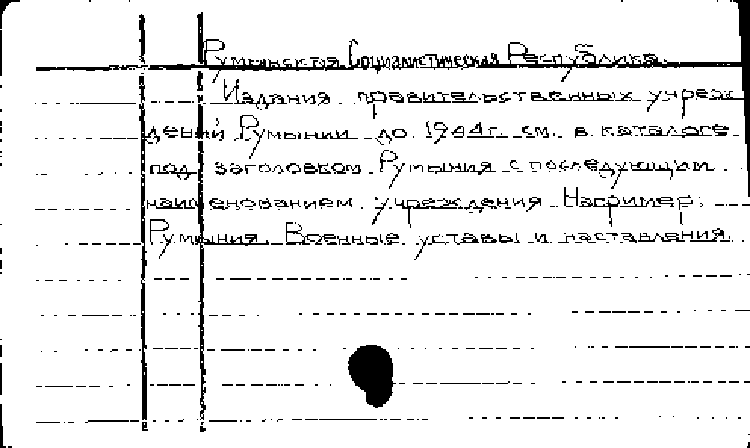 Румынская Социалистическая Республика.
Издания правительственных учреж
дений Румынии до 1944г. см. в каталоге
под заголовком Румыния с последующим
наименованием учреждения. Например:
Румыния. Военные уставы и наставления.